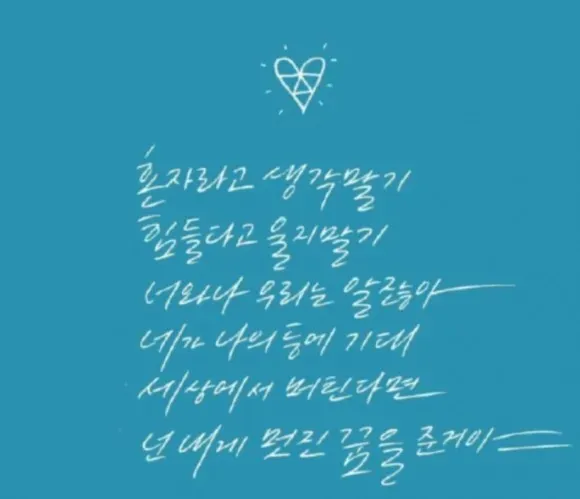 혼자라고 생각말기
힘들다고 울지말기
너와나 우리는 알잖아
네가 나의 등에 기대
세상에서 버틴다면
넌 내게 멋진 꿈을 준거야